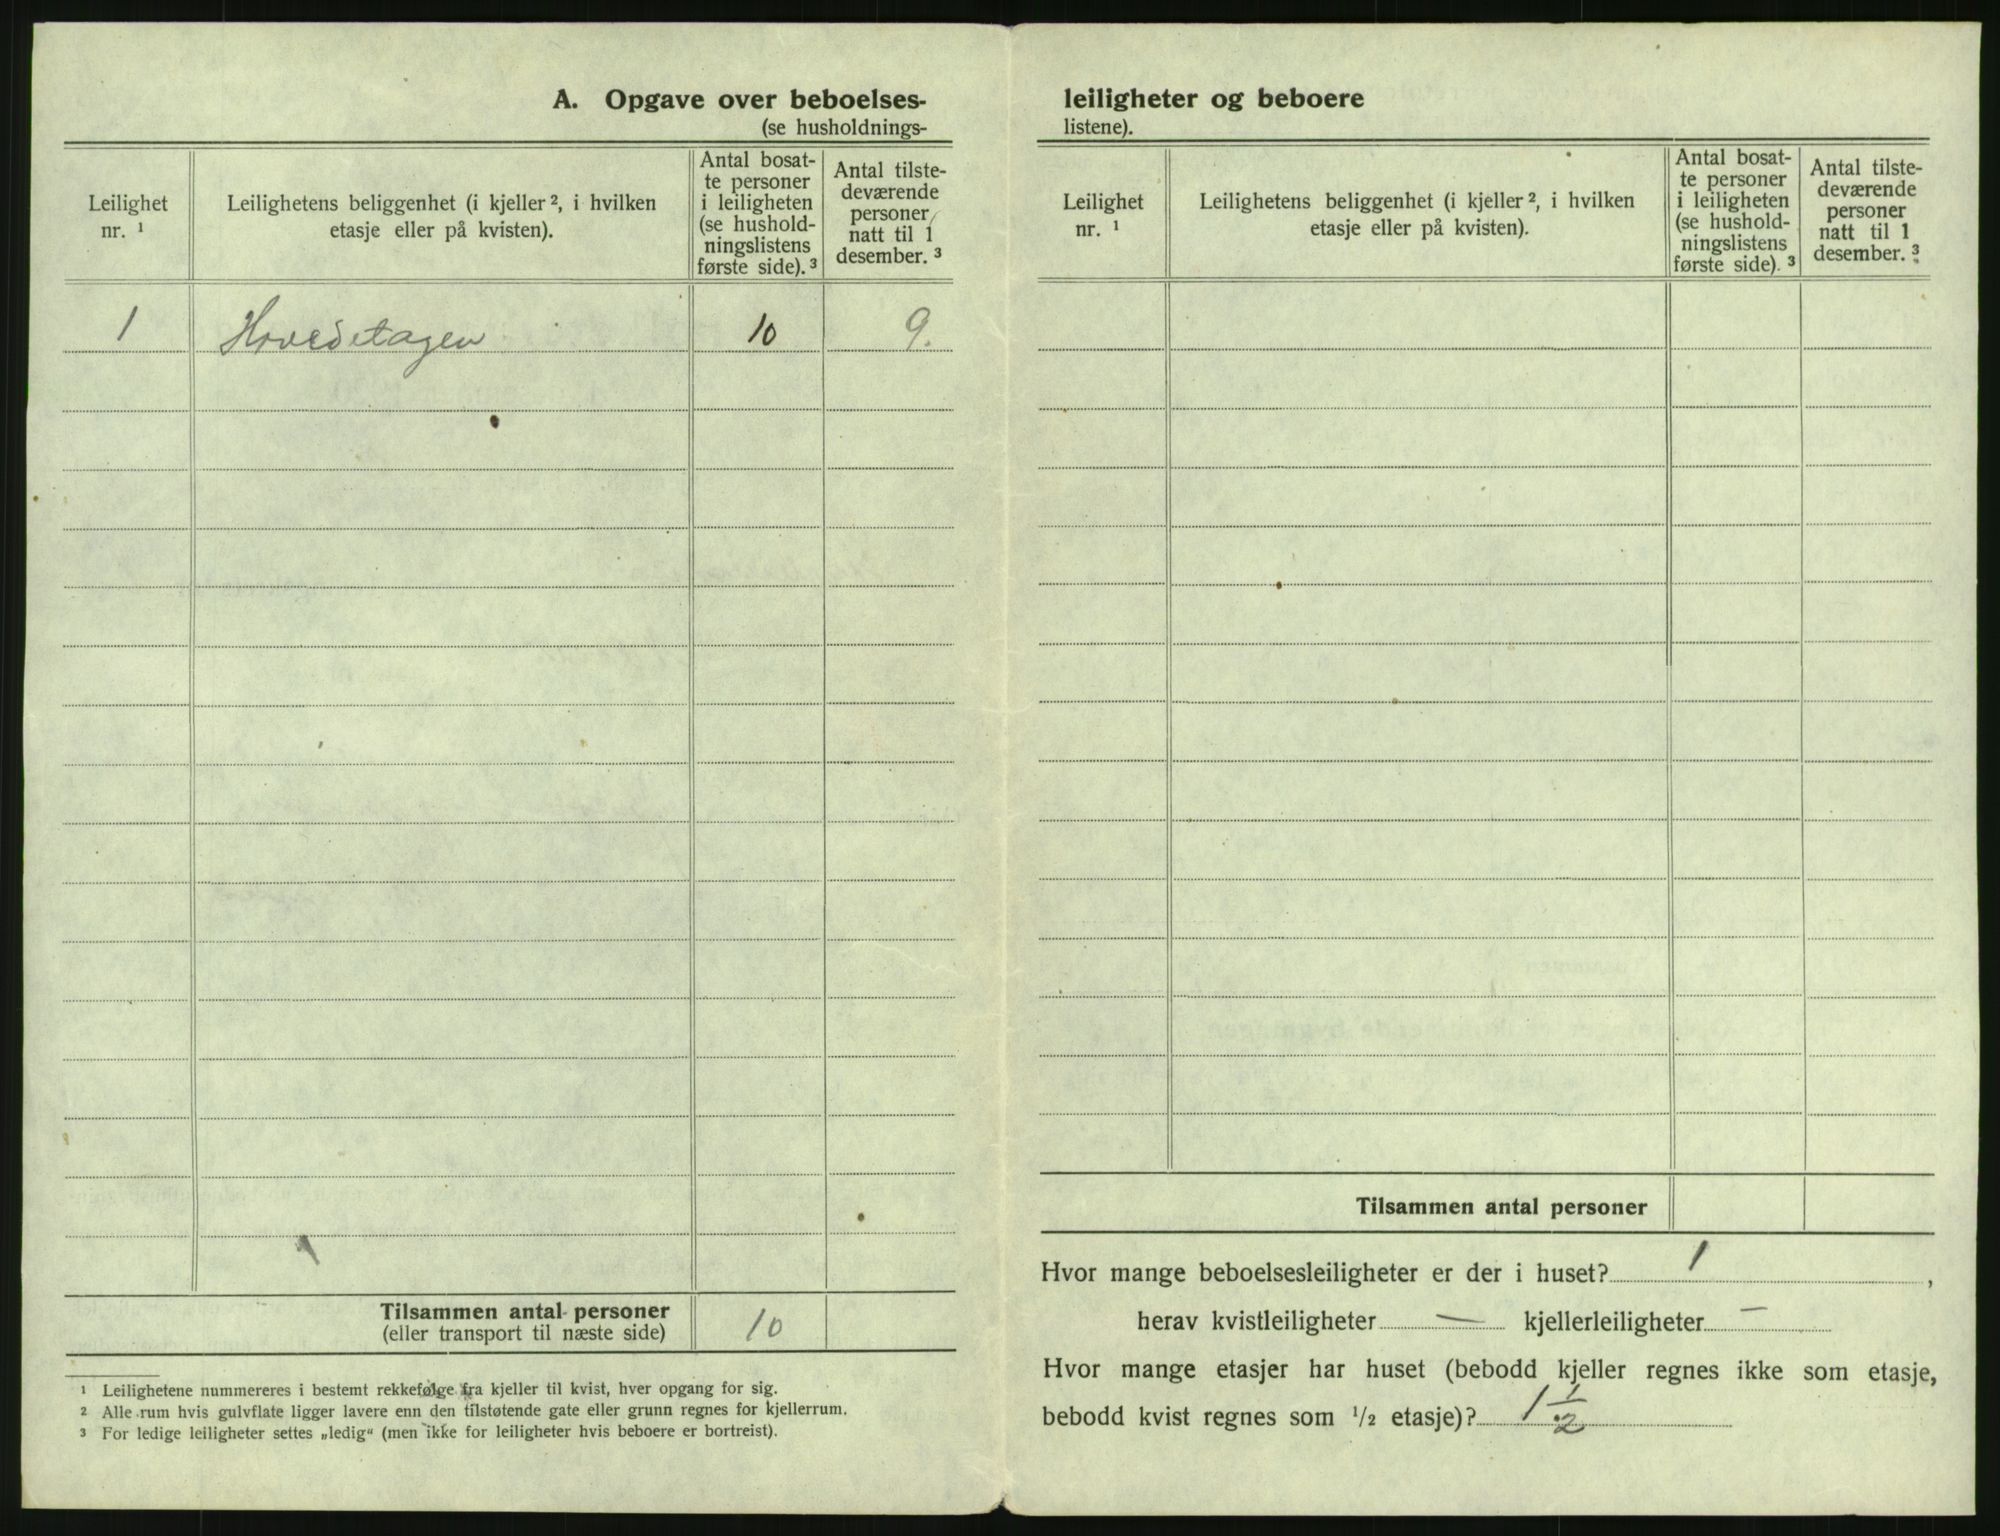 A. Opgave over beboelses-
(se husholdnings-
Leilighet
nr. ¹
Leilighetens beliggenhet (i kjeller ², i hvilken
etasje eller på kvisten).
Antal bosat-
te personer
i leiligheten
(se hushold-
ningslistens
første side). ³
Antal tilste-
deværende
personer
natt til 1
desember. ³
1 Hovedetagen 10 9.
Tilsammen antal personer
(eller transport til næste side) 10
¹ Leilighetene nummereres i bestemt rekkefølge fra kjeller til kvist, hver opgang for sig.
² Alle rum hvis gulvflate ligger lavere enn den tilstøtende gate eller grunn regnes for kjellerrum.
³ For ledige leiligheter settes „ledig“ (men ikke for leiligheter hvis beboere er bortreist).
leiligheter og beboere
listene).
Leilighet
nr. ¹
Leilighetens beliggenhet (i kjeller ², i hvilken
etasje eller på kvisten).
Antal bosat-
te personer
i leiligheten
(se hushold-
ningslistens
første side). ³
Antal tilste-
deværende
personer
natt til 1
desember. ³
Tilsammen antal personer
Hvor mange beboelsesleiligheter er der i huset? 1 ,
herav kvistleiligheter — kjellerleiligheter —
Hvor mange etasjer har huset (bebodd kjeller regnes ikke som etasje,
bebodd kvist regnes som ¹/₂ etasje)? 1 ½